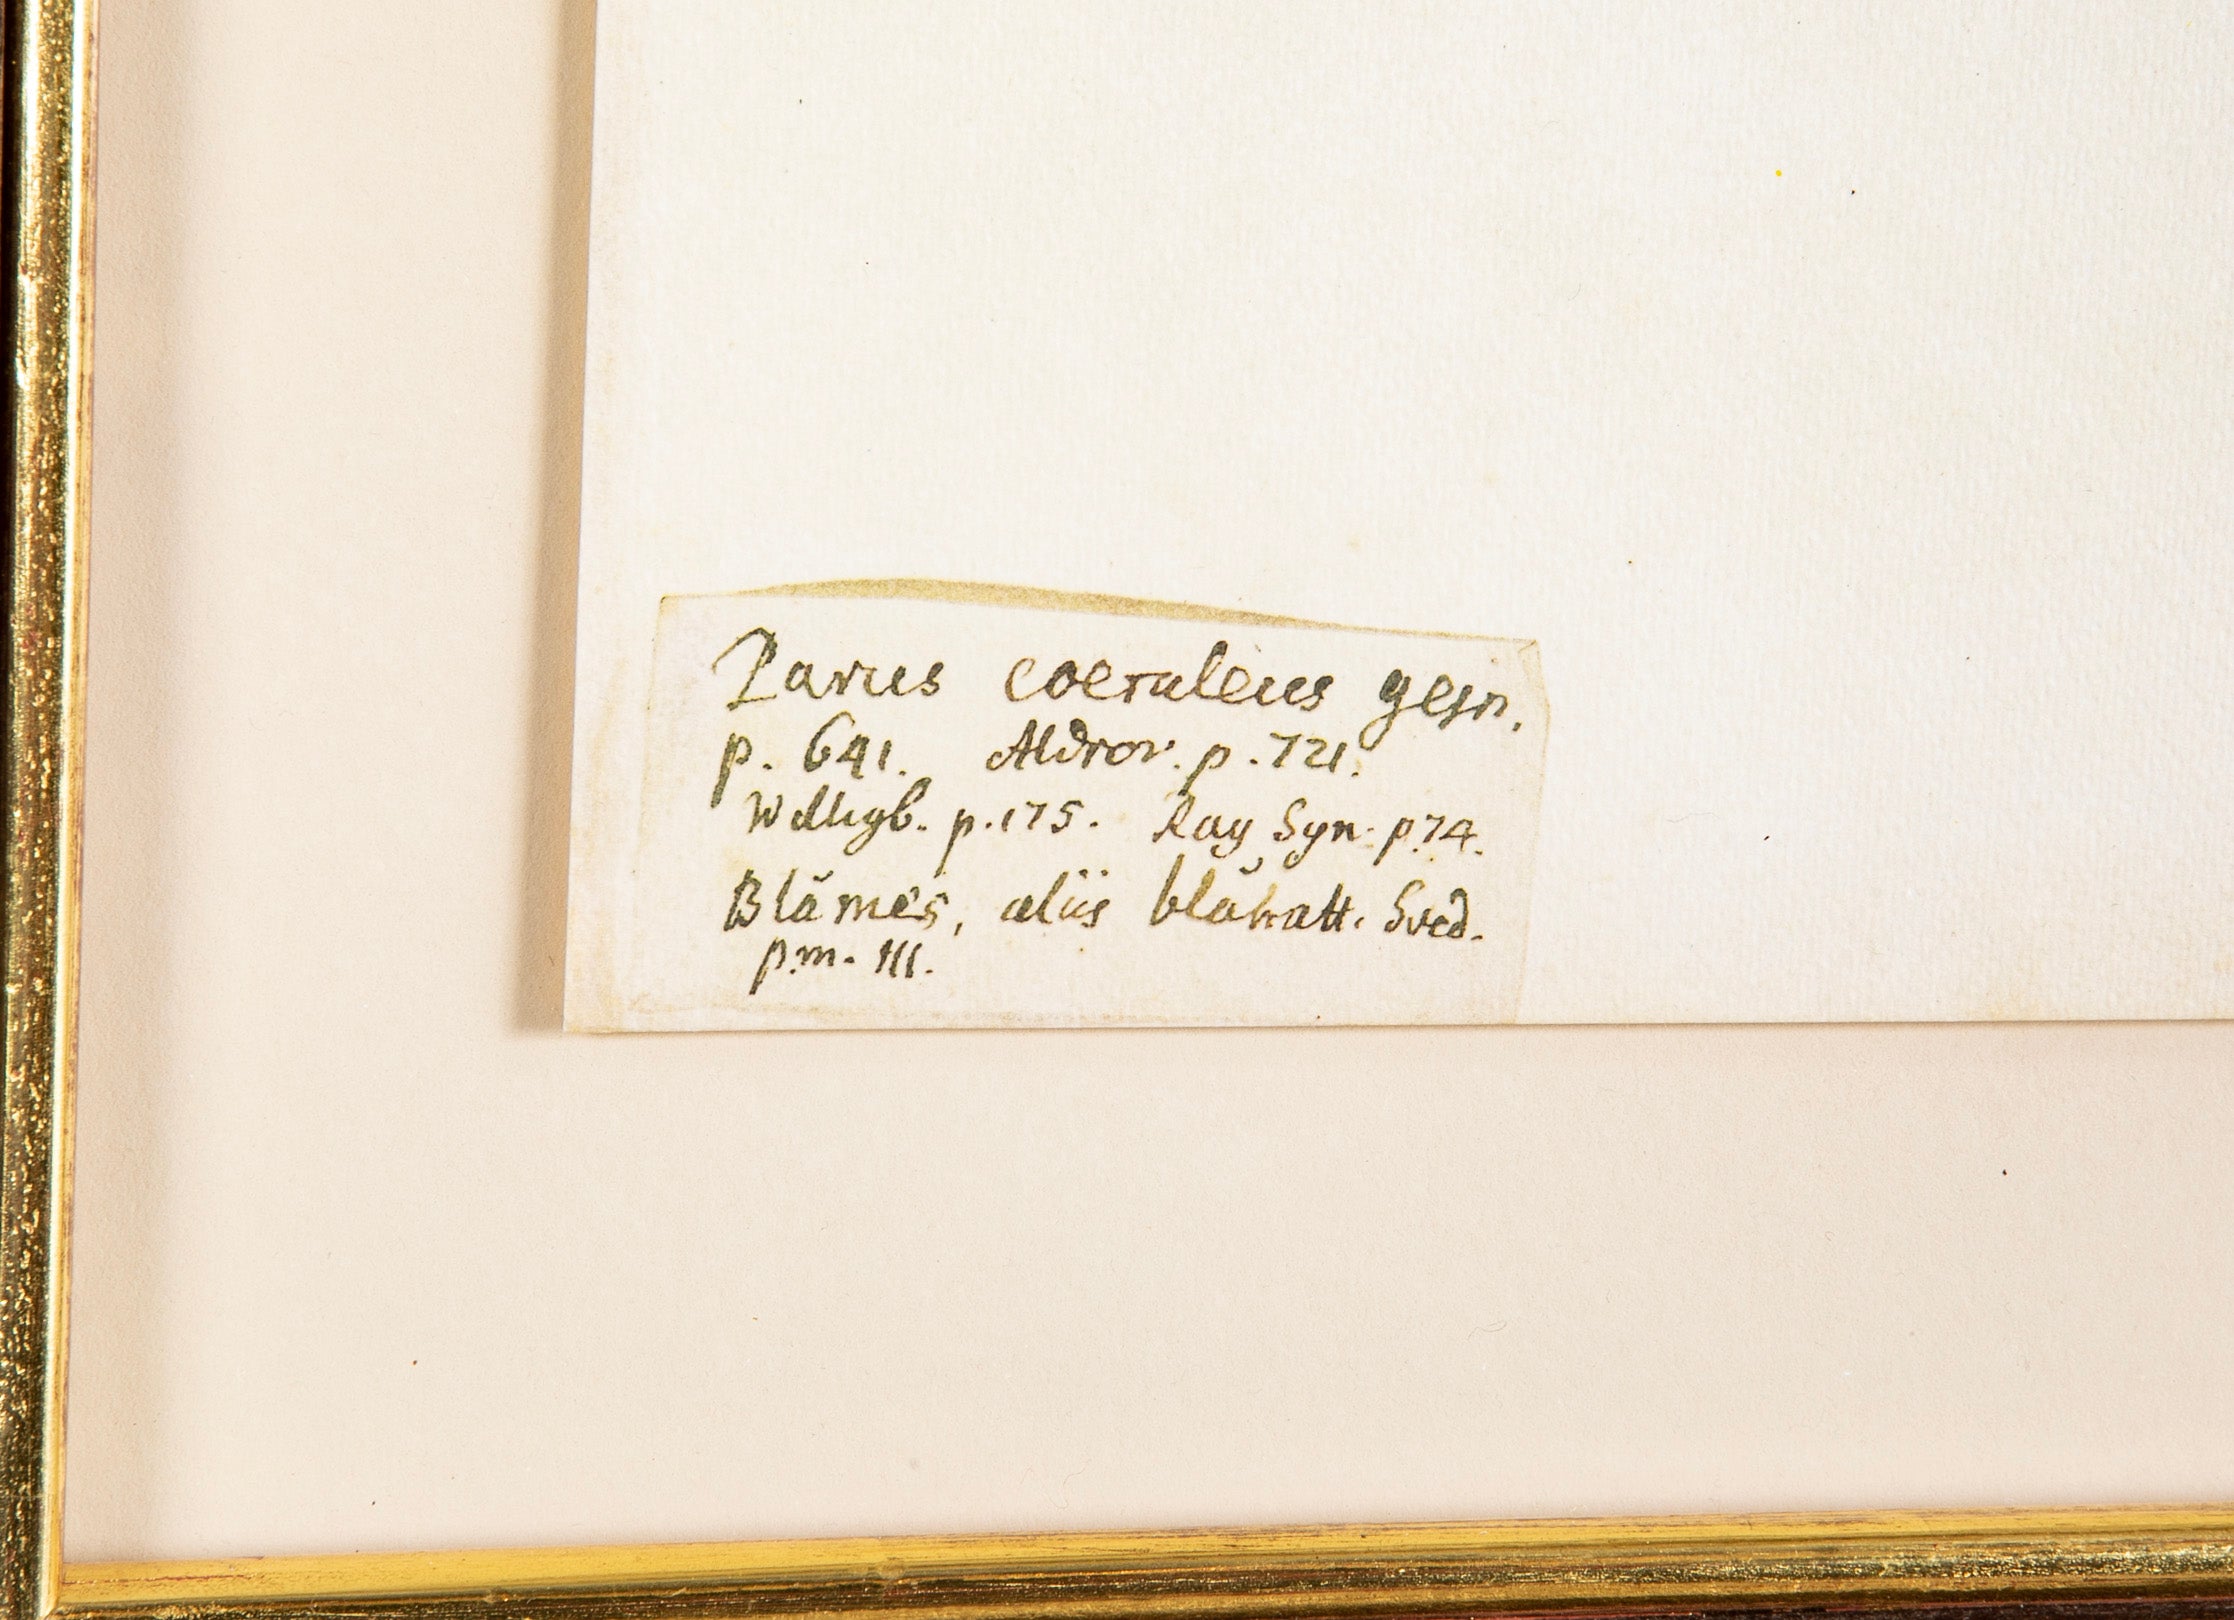 Parus coeruleus gesn.
p. 641. Aldrov. p. 721.
Willugb. p. 175. Ray Syn. p. 74.
Blåmes, aliis blåhatt. Sved.
p. m. 111.